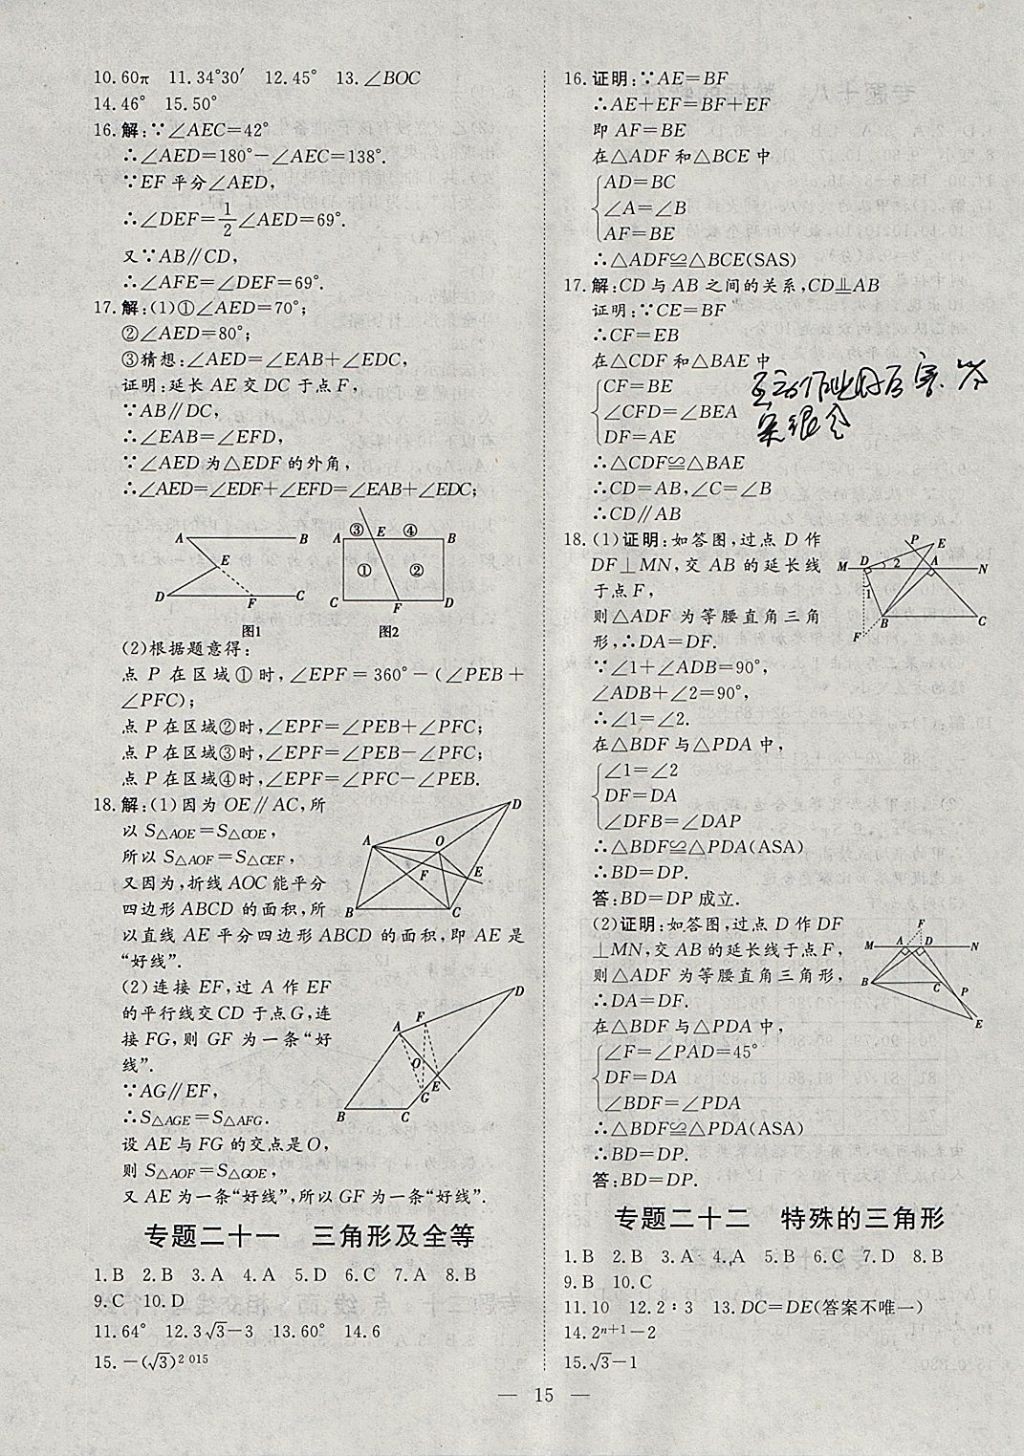 10.60π 11.34°30′ 12.45° 13.∠BOC
14.46° 15.50°
16.解:∵∠AEC=42°
∴∠AED=180°-∠AEC=138°.
∵EF平分∠AED,
∴∠DEF=1/2∠AED=69°.
又∵AB∥CD,
∴∠AFE=∠DEF=69°.
17.解:(1)①∠AED=70°;
②∠AED=80°;
③猜想:∠AED=∠EAB+∠EDC,
证明:延长AE交DC于点F,
∵AB∥DC,
∴∠EAB=∠EFD,
∵∠AED为△EDF的外角,
∴∠AED=∠EDF+∠EFD=∠EAB+∠EDC;
A B E D F C
图1
③ E ④ A B ① ② C F D
图2
(2)根据题意得:
点P在区域①时,∠EPF=360°-(∠PEB+
∠PFC);
点P在区域②时,∠EPF=∠PEB+∠PFC;
点P在区域③时,∠EPF=∠PEB-∠PFC;
点P在区域④时,∠EPF=∠PFC-∠PEB.
18.解:(1)因为OE∥AC,所
以S△AOE=S△COE,
所以S△AOF=S△CEF,
又因为,折线AOC能平分
四边形ABCD的面积,所
以直线AE平分四边形ABCD的面积,即AE是
“好线”.
D A O F E B C
(2)连接EF,过A作EF
的平行线交CD于点G,连
接FG,则GF为一条“好
线”.
∵AG∥EF,
∴S△AGE=S△AFG.
设AE与FG的交点是O,
则S△AOF=S△GOE,
又AE为一条“好线”,所以GF为一条“好线”.
D F A O E G B C
专题二十一 三角形及全等
1.B 2.B 3.A 4.A 5.D 6.C 7.A 8.B
9.C 10.D
11.64° 12.3√3-3 13.60° 14.6
15.-(√3)2 015
16.证明:∵AE=BF
∴AE+EF=BF+EF
即AF=BE
在△ADF和△BCE中
AD=BC
∠A=∠B
AF=BE
∴△ADF≌△BCE(SAS)
17.解:CD与AB之间的关系,CD⊥∥AB
证明:∵CE=BF
∴CF=EB
在△CDF和△BAE中
CF=BE
∠CFD=∠BEA
DF=AE
∴△CDF≌△BAE
∴CD=AB,∠C=∠B
∴CD∥AB
18.(1)证明:如答图,过点D作
DF⊥MN,交AB的延长线
于点F,
则△ADF为等腰直角三角
形,∴DA=DF.
∵∠1+∠ADB=90°,
∠ADB+∠2=90°,
∴∠1=∠2.
在△BDF与△PDA中,
∠1=∠2
DF=DA
∠DFB=∠DAP
∴△BDF≌△PDA(ASA)
∴BD=DP.
答:BD=DP成立.
P E M D 2 A N 1 B C F
(2)证明:如答图,过点D作DF
⊥MN,交AB的延长线于点F,
则△ADF为等腰直角三角形,
∴DA=DF.
在△BDF与△PDA中,
∠F=∠PAD=45°
DF=DA
∠BDF=∠PDA
∴△BDF≌△PDA(ASA)
∴BD=DP.
答:BD=DP.
F M A D N B C P E
专题二十二 特殊的三角形
1.B 2.B 3.A 4.A 5.B 6.C 7.D 8.B
9.B 10.C
11.10 12.2∶3 13.DC=DE(答案不唯一)
14.2n+1-2
15.√3-1
— 15 —